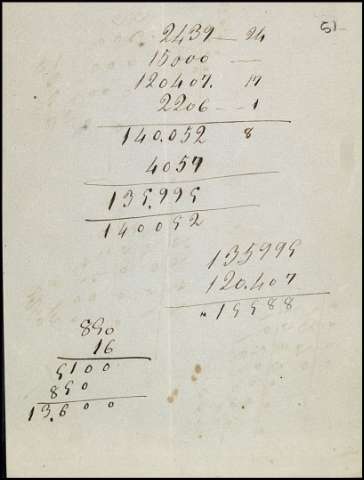 2439 24
51
15000
120407. 17
2206 1
140.052 8
4057
135.995
140052
135995
120.407
" 15588
850
16
5100
850
13.600